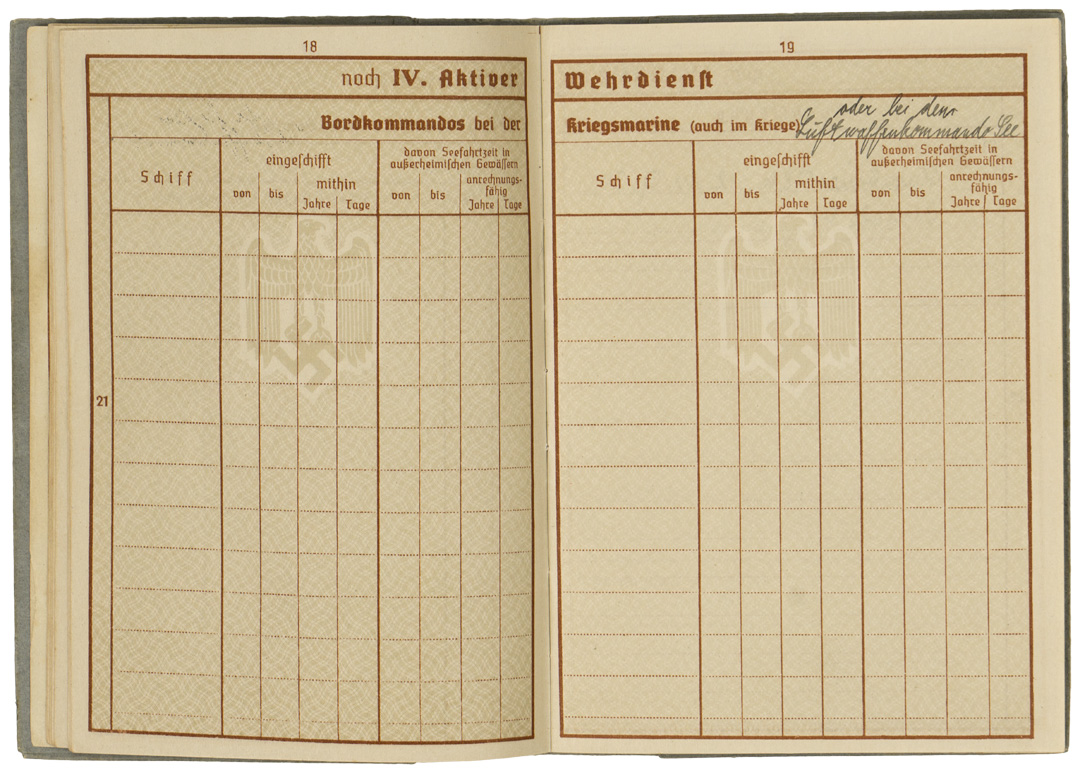 18
noch IV. Aktiver
Bordkommandos bei der
Schiff
eingeschifft
von
bis
mithin
Jahre
Tage
davon Seefahrtzeit in
außerheimischen Gewässern
von
bis
anrechnungs-
fähig
Jahre
Tage
21
19
Wehrdienst
oder bei dem
Kriegsmarine (auch im Kriege) Luftwaffenkommando See
Schiff
eingeschifft
von
bis
mithin
Jahre
Tage
davon Seefahrtzeit in
außerheimischen Gewässern
von
bis
anrechnungs-
fähig
Jahre
Tage